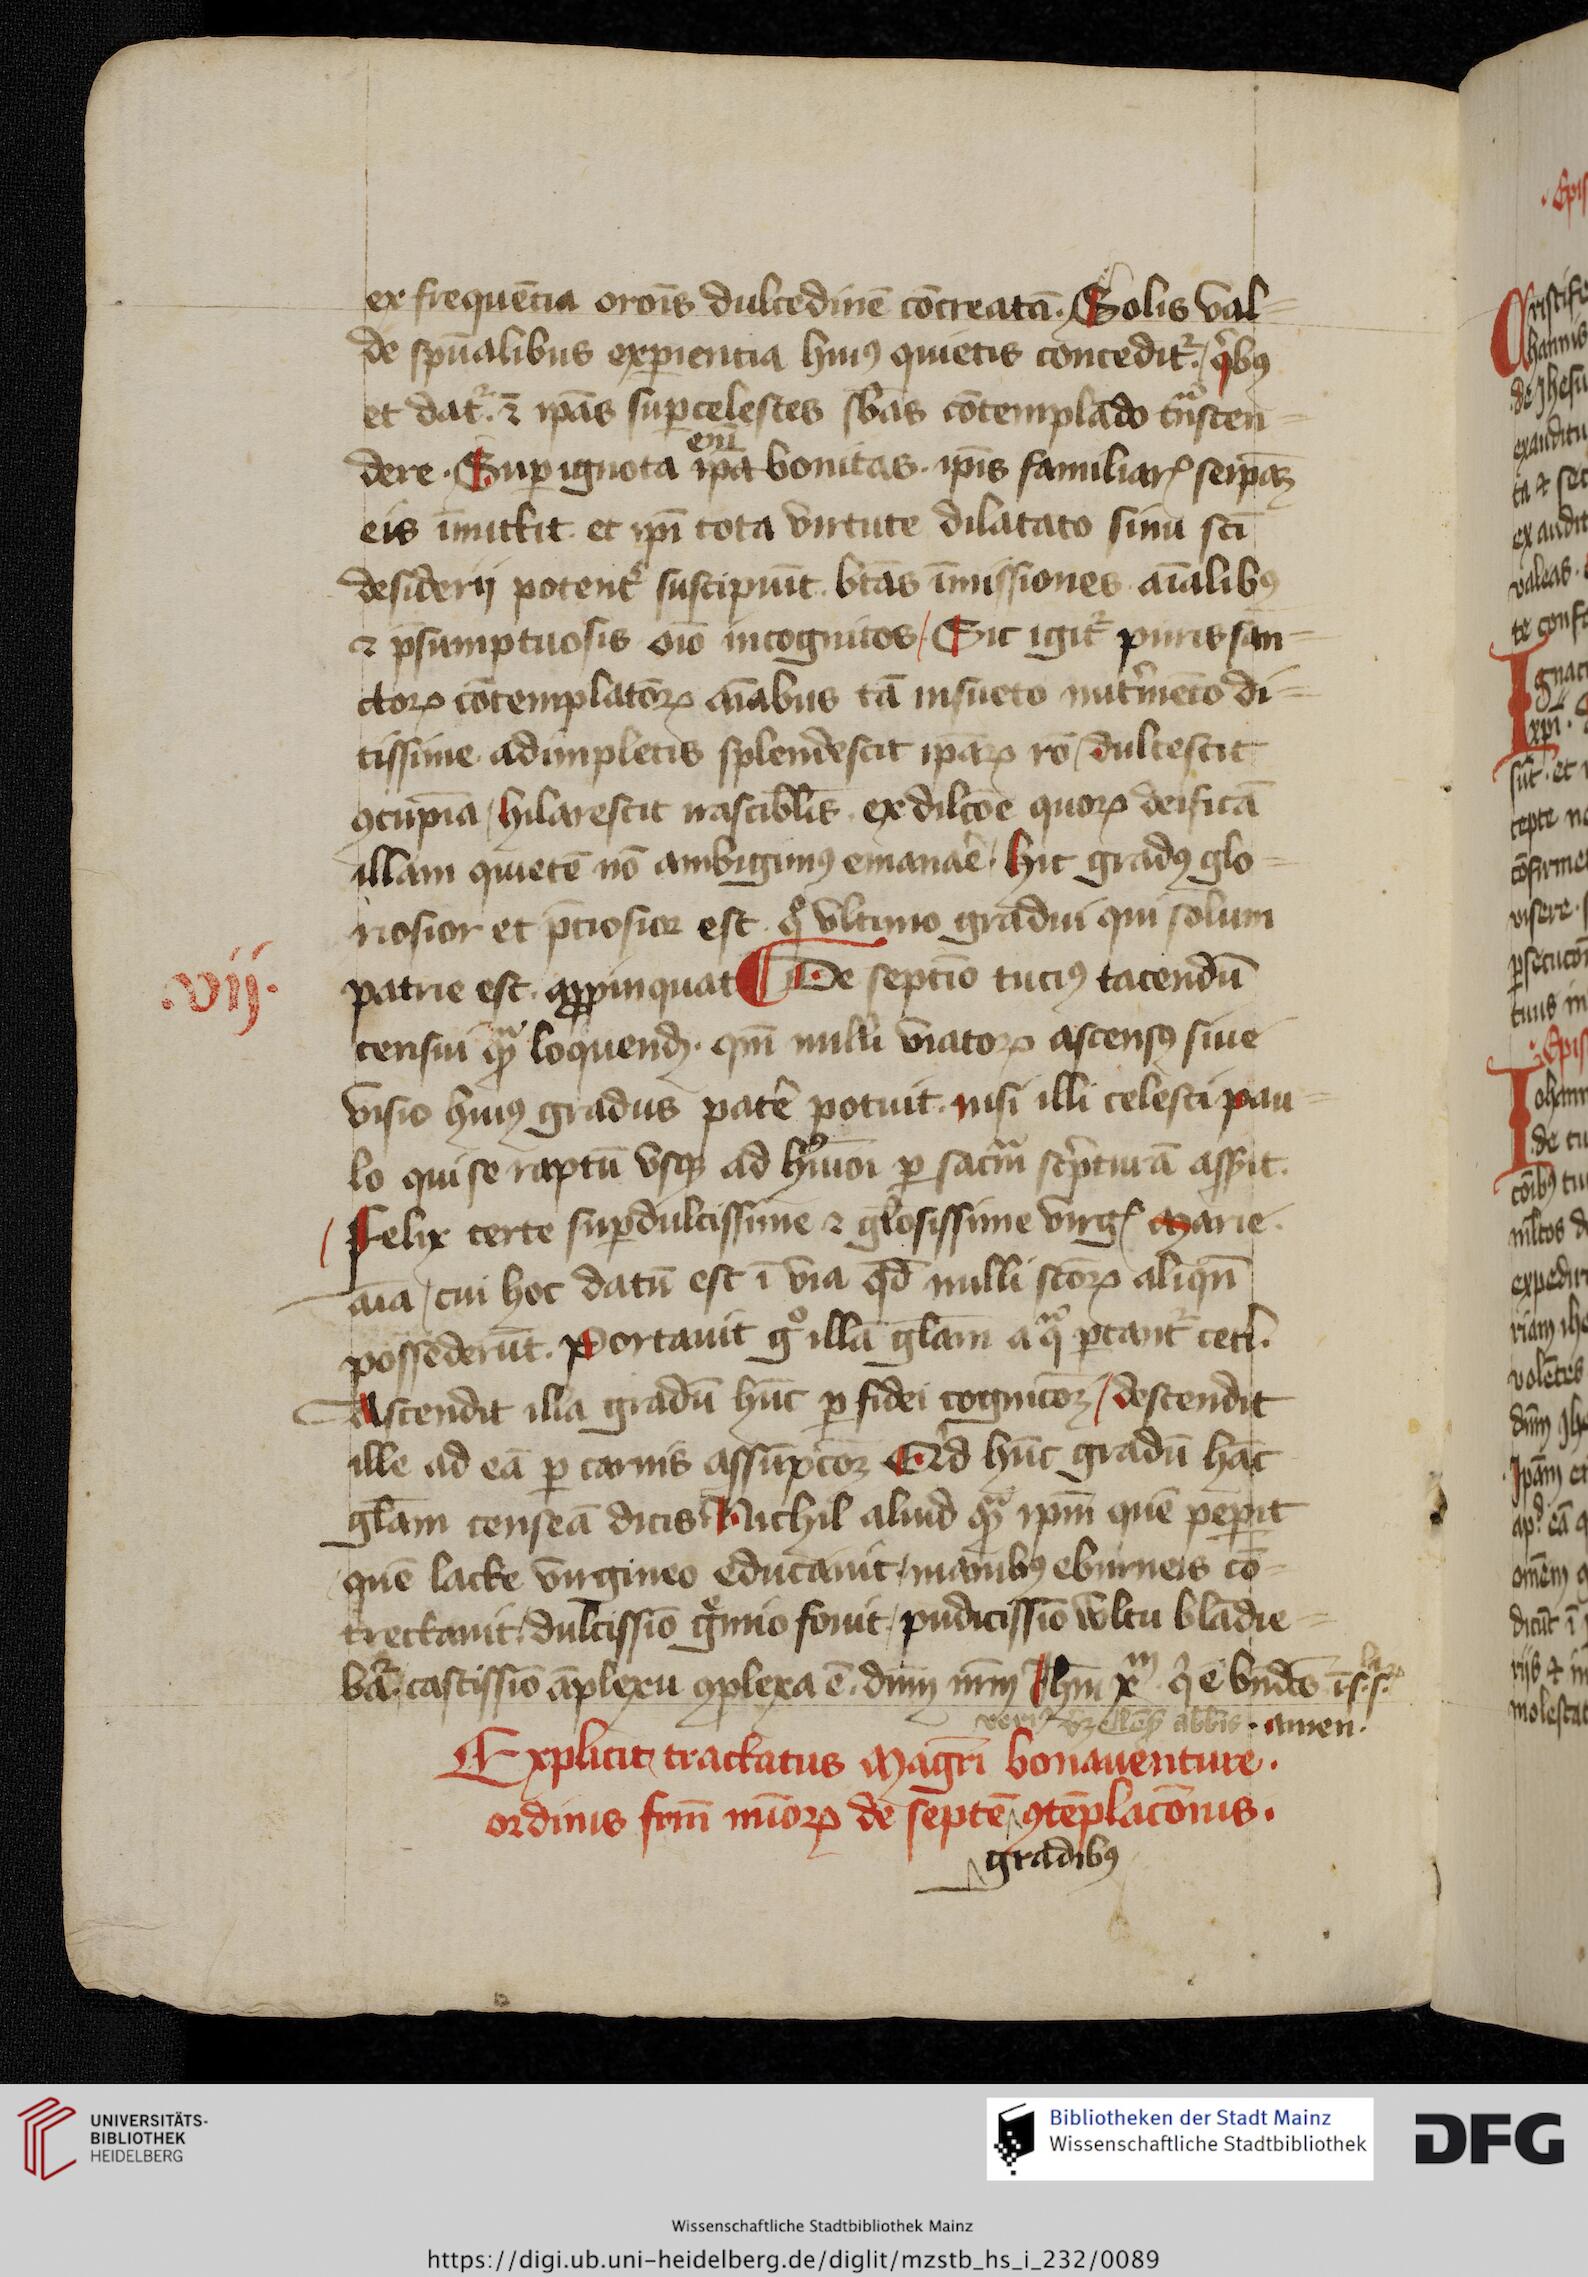 ex frequēcia orōis dulcedinē cōcreatā. Solis val=
de spūalibus exꝑiencia huiꝰ quietis conceditᷣ. qͥbꝰ
et datᷣ. ⁊ ip̄as suꝑcelestes sb̄as cōtemplādo tᷓnscen=
dere. Suꝑ ignota enī ip̄a bonitas. ip̄is familiarꝭ seip̄aꝫ
eis īmittit. et ip̄i tota virtute dilatato sinu sc̄i
desiderij potentᷣ suscipiūt. bt̄as īmissiones. aīalibꝰ
⁊ p̄sumptuosis oīo incognitos / Sic igitᷣ puris san=
ctoꝝ cōtemplatoꝝ aīabus tā insueto nutᷣmēto di=
tissime adimpletis splendescit ip̄aꝝ rō / dulcescit
ꝯcupīa / hilarescit irascibl̄is. ex dilc̄oe quoꝝ deificā
illam quietē nō ambigimꝰ emanaᷣe. hic gradꝰ glo=
riosior et p̄ciosior est. qͥ vltimo gradui qui solum
patrie est. aꝓpinquat De septīo tuciꝰ tacendū
censui qͣꝫ loquendꝫ. qm̄ nulli viatoꝝ ascensꝰ siue
visio huiꝰ gradus patēe potuit. nisi illi celesti pau=
lo qui se raptū vsqꝫ ad hm̄oi ꝑ sacᷓm sc̄pturā assᷣit.
Felix certe suꝑdulcissime ⁊ gl̄osissime virgꝭ Marie.
aīa / cui hoc datū est ī via qd̄ nulli sc̄oꝝ aliqn̄
possederūt. Portauit gͦ illā gl̄am a qͣ portantᷣ cetī.
Ascendit illa gradū hūc ꝑ fidei cognic̄oꝫ / descendit
ille ad eā ꝑ carnis assūpc̄oꝫ Qͥd hūc gradū hāc
gl̄am censeā dicis Nichil aliud qͣꝫ ip̄m quē peꝑit
quē lacte virgineo educauit / manibꝰ eburneis cō=
trectauit / dulcissīo gͤmio fouit / pudicissīo vltu blādie=
batᷣ. castissīo āplexu ꝯplexa ē. dn̄m nr̄m Jhm̄ xᵐ. qͥ ē bn̄dc̄o ī s. s.
amen.
Explicit tractatus Magr̄i bonauenture.
ordinis frm̄ mīoꝝ de septē ꝯtēplac̄onis.
gradibꝰ
.vij.
UNIVERSITÄTS-
BIBLIOTHEK
HEIDELBERG
Bibliotheken der Stadt Mainz
Wissenschaftliche Stadtbibliothek
DFG
Wissenschaftliche Stadtbibliothek Mainz
https://digi.ub.uni-heidelberg.de/diglit/mzstb_hs_i_232/0089